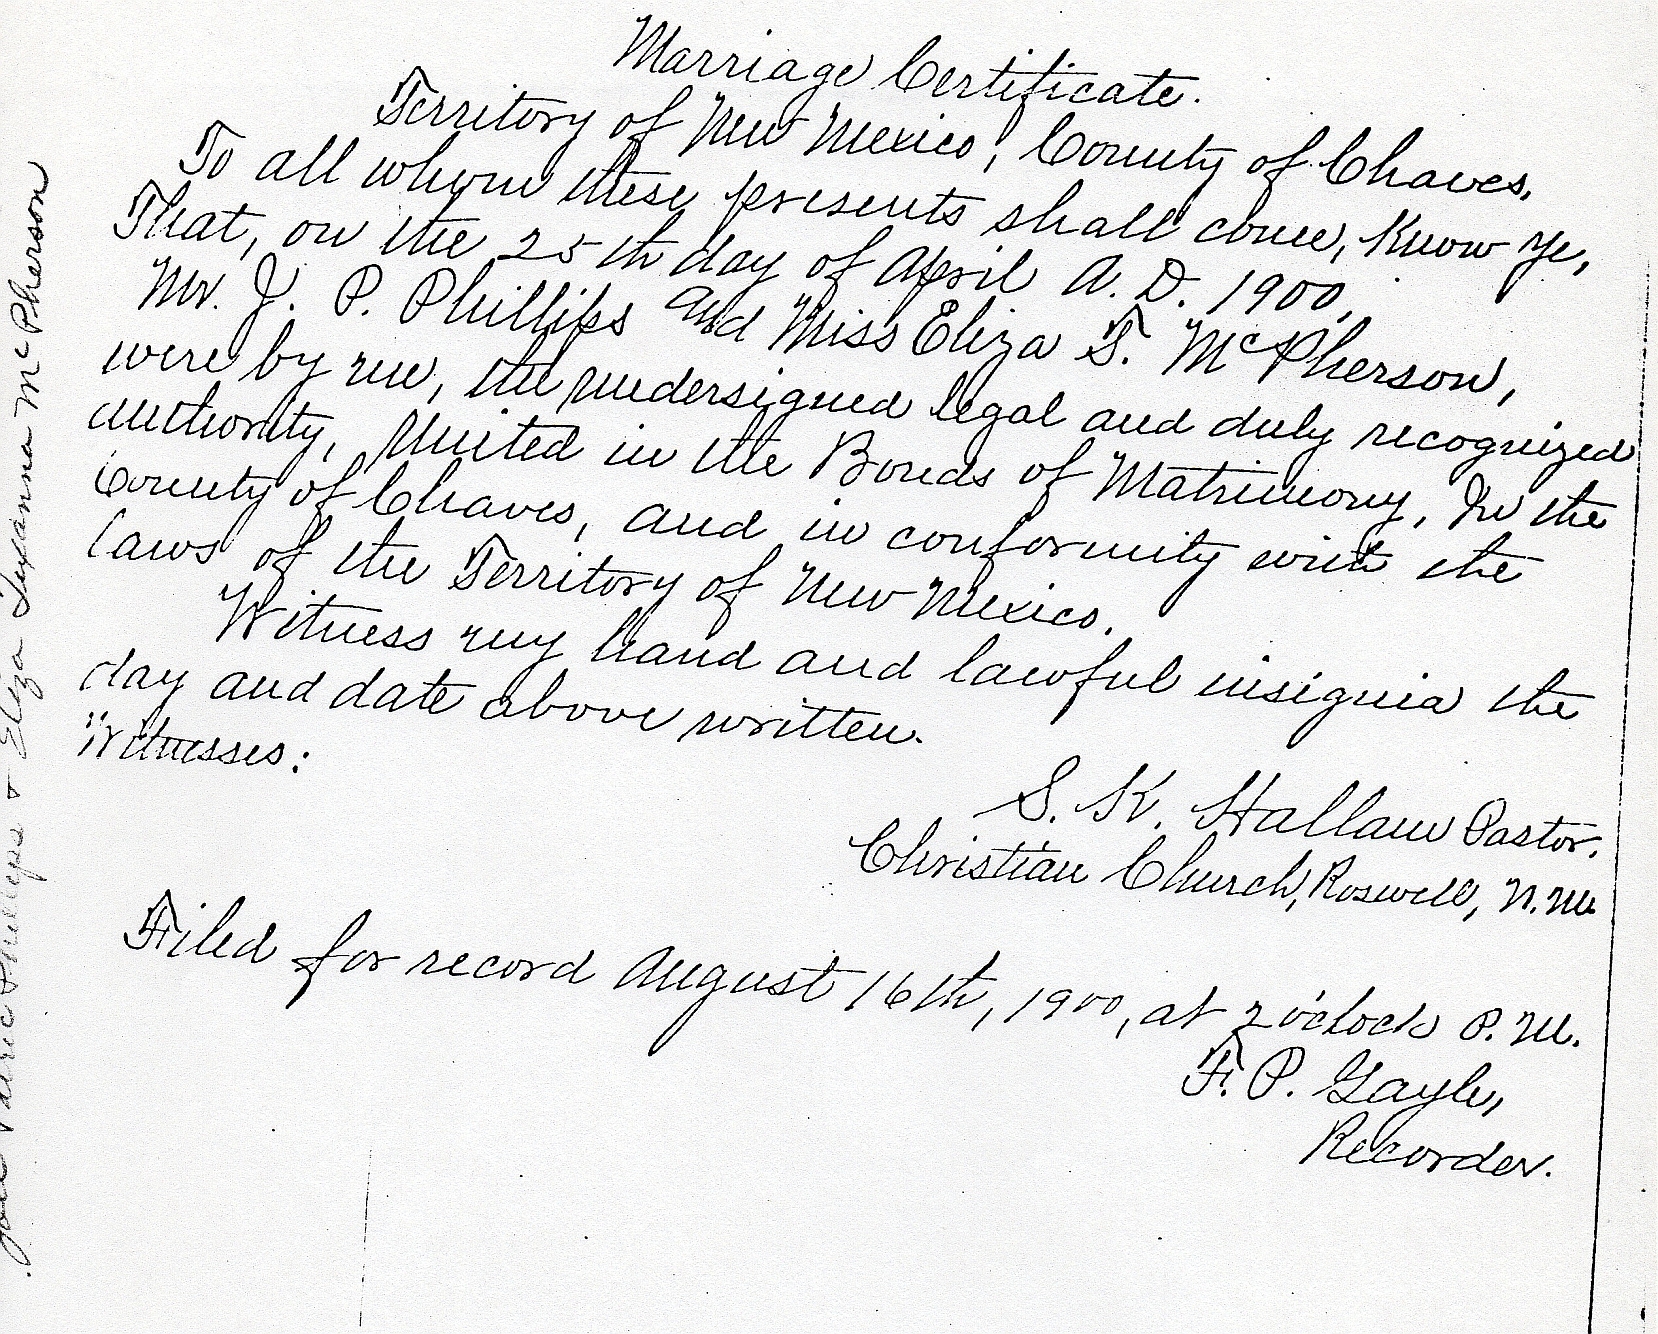 Marriage Certificate.
Territory of New Mexico, County of Chaves.
To all whom these presents shall come, Know Ye,
That, on the 25th day of April A. D. 1900,
Mr. J. P. Phillips and Miss Eliza T. McPherson,
were by me, the undersigned legal and duly recognized
authority, United in the Bonds of Matrimony, In the
County of Chaves, and in conformity with the
laws of the Territory of New Mexico.
Witness my hand and lawful insignia the
day and date above written.
Witnesses:
S. K. Hallam Pastor.
Christian Church, Roswell, N.M.
Filed for record August 16th, 1900, at 2 o'clock P.M.
F. P. Gayle,
Recorder.
Phillips & Eliza Texanna McPherson